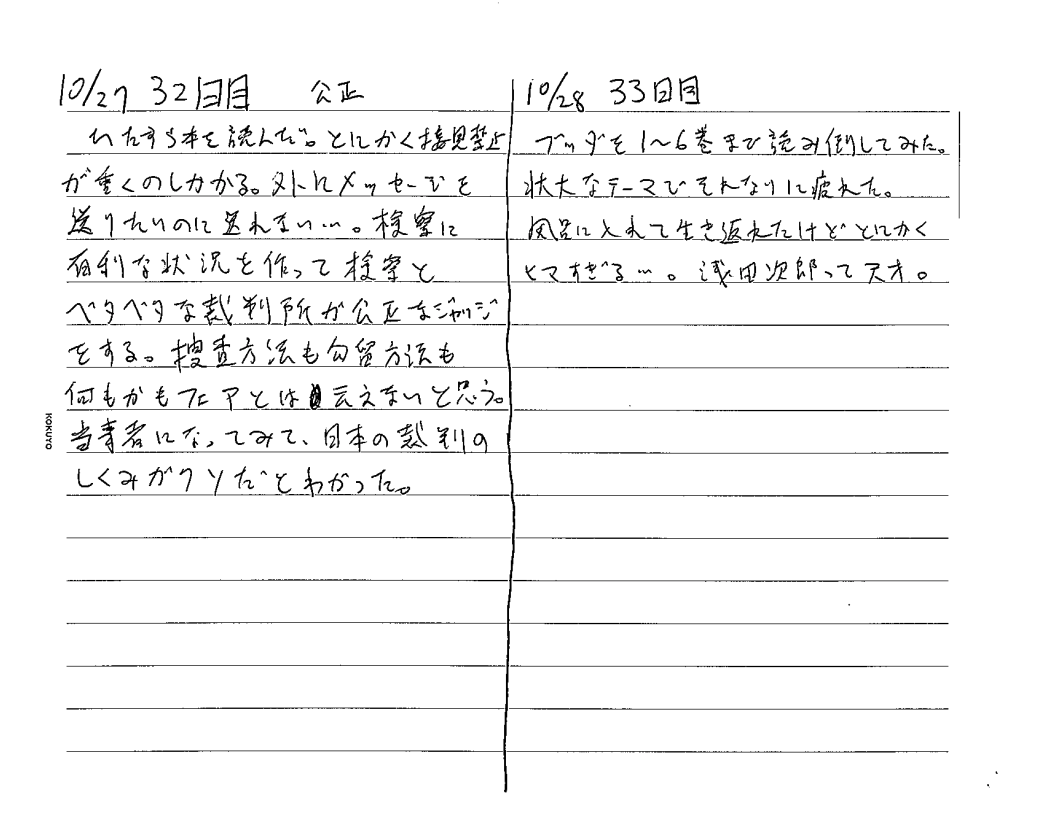 10/27 32日目 公正
ひたすら本を読んだ。とにかく接見禁止
が重くのしかかる。外にメッセージを
送りたいのに送れない…。検察に
有利な状況を作って検察と
ベタベタな裁判所が公正なジャッジ
をする。捜査方法も勾留方法も
何もかもフェアとは言えないと思う。
当事者になってみて、日本の裁判の
しくみがクソだとわかった。
KOKUYO
10/28 33日目
ブッダを1〜6巻まで読み倒してみた。
壮大なテーマでそれなりに疲れた。
風呂に入れて生き返れたけどとにかく
ヒマすぎる…。浅田次郎って天才。